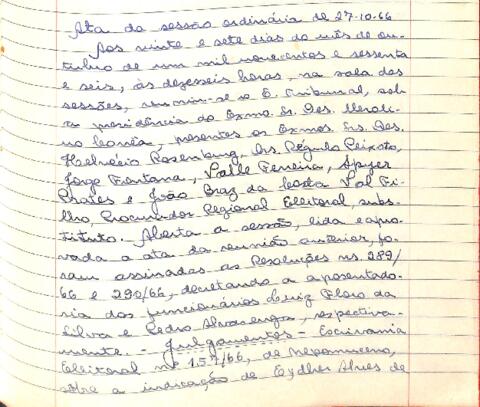 Ata da sessão ordinária de 27-10-66
Aos vinte e sete dias do mês de ou-
tubro de um mil novecentos e sessenta
e seis, às dezesseis horas, na sala das
sessões, reuniu-se o E. Tribunal, sob
a presidência do Exmo. Sr. Des. Meroli-
no Corrêa, presentes os Exmos. Srs. Des.
Helvécio Rosenburg, Drs. Régulo Peixoto,
Jorge Fontana, Valle Ferreira, Spyer
Prates e João Braz da Costa Val Fi-
lho, Procurador Regional Eleitoral, subs-
tituto. Aberta a sessão, lida e apro-
vada a ata da reunião anterior, fo-
ram assinadas as Resoluções ns. 289/
66 e 290/66, decretando a aposentado-
ria dos funcionários Luiz Floro da
Silva e Pedro Alvarenga, respectiva-
mente. - Julgamentos - Escrivania
Eleitoral nº 157/66, de Nepomuceno,
sôbre a indicação de Eydher Alves de